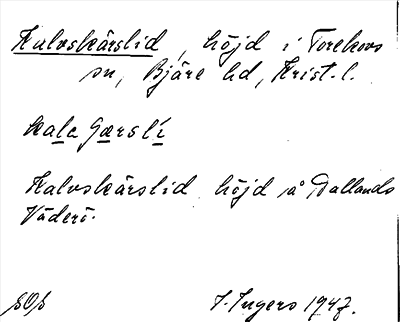 Kalvskärslid, höjd i Torekovs
sn, Bjäre hd, Krist. l.
kala Gærslí
Kalvskärslid höjd på Hallands
Väderö.
SOS
I. Ingers 1947.